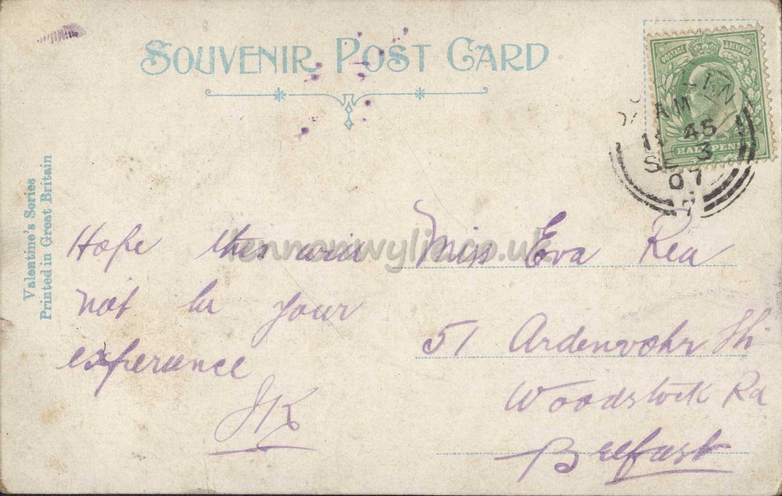 SOUVENIR POST CARD
Valentine's Series
Printed in Great Britain
POSTAGE REVENUE
HALFPENNY
AM
11 45
SE 3
07
lennonwylie.co.uk
Hope this will
not be your
experience
JK
Miss Eva Rea
51 Ardenvohr St
Woodstock Rd
Belfast